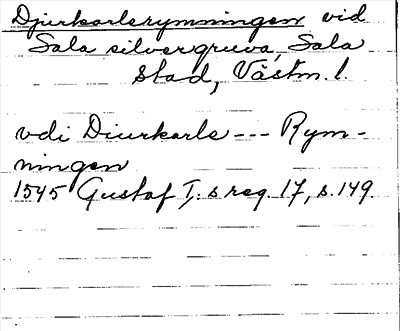 Djurkarlsrymningen vid
Sala silvergruva, Sala
stad, Västm. l.
vdi Diurkarls --- Rym-
ningen
1545 Gustaf I:s reg. 17, s. 149.